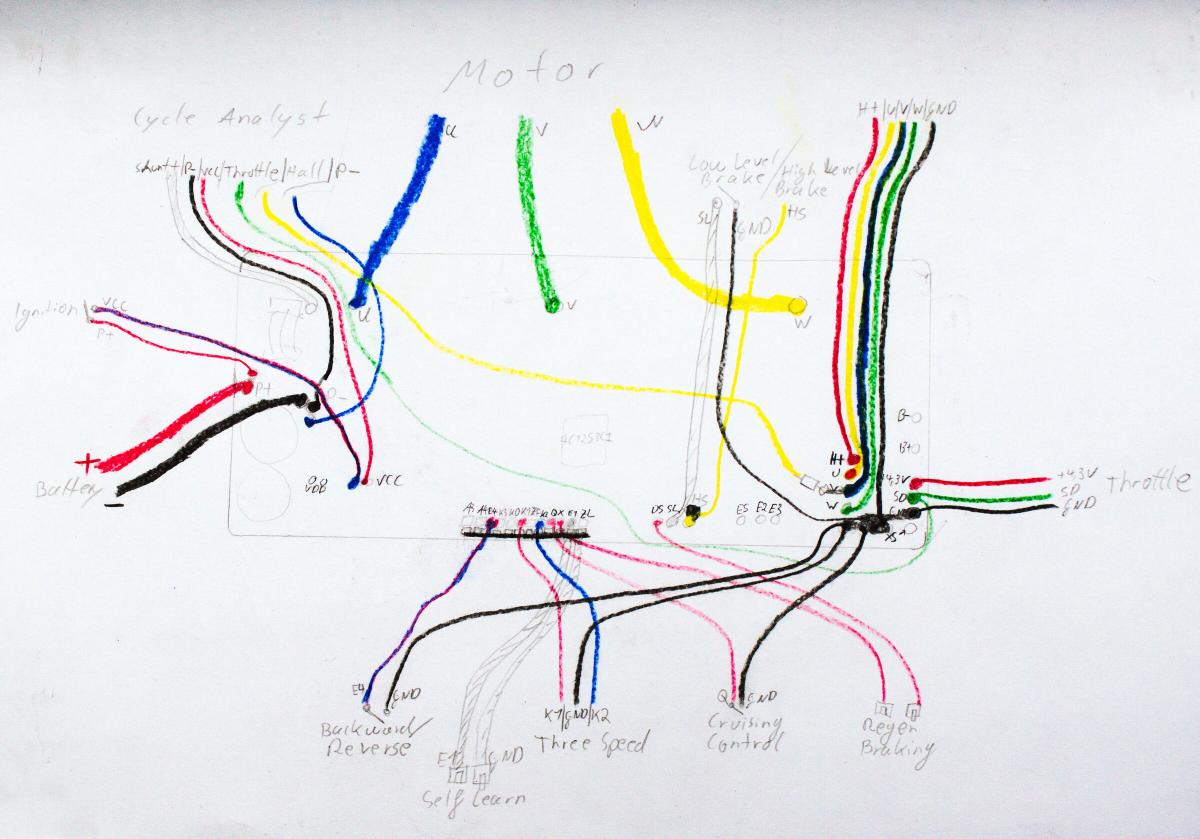 Motor
Cycle Analyst
Shunt+/P-/VCC/Throttle/Hall/P-
U
V
W
H+/U/V/W/GND
Low Level
Brake
/High Level
Brake
SL
GND
HS
Ignition
VCC
P+
U
V
W
P+
P-
+
Battery
-
VDB
VCC
B-
B+
H+
U
W
+4,3V
SD
+4,3V
SD
GND
Throttle
HS
SL
E5 E2 E3
E4
GND
Backward/
Reverse
GND
Self Learn
K1/GND/K2
Three Speed
Q
GND
Cruising
Control
Regen
Braking